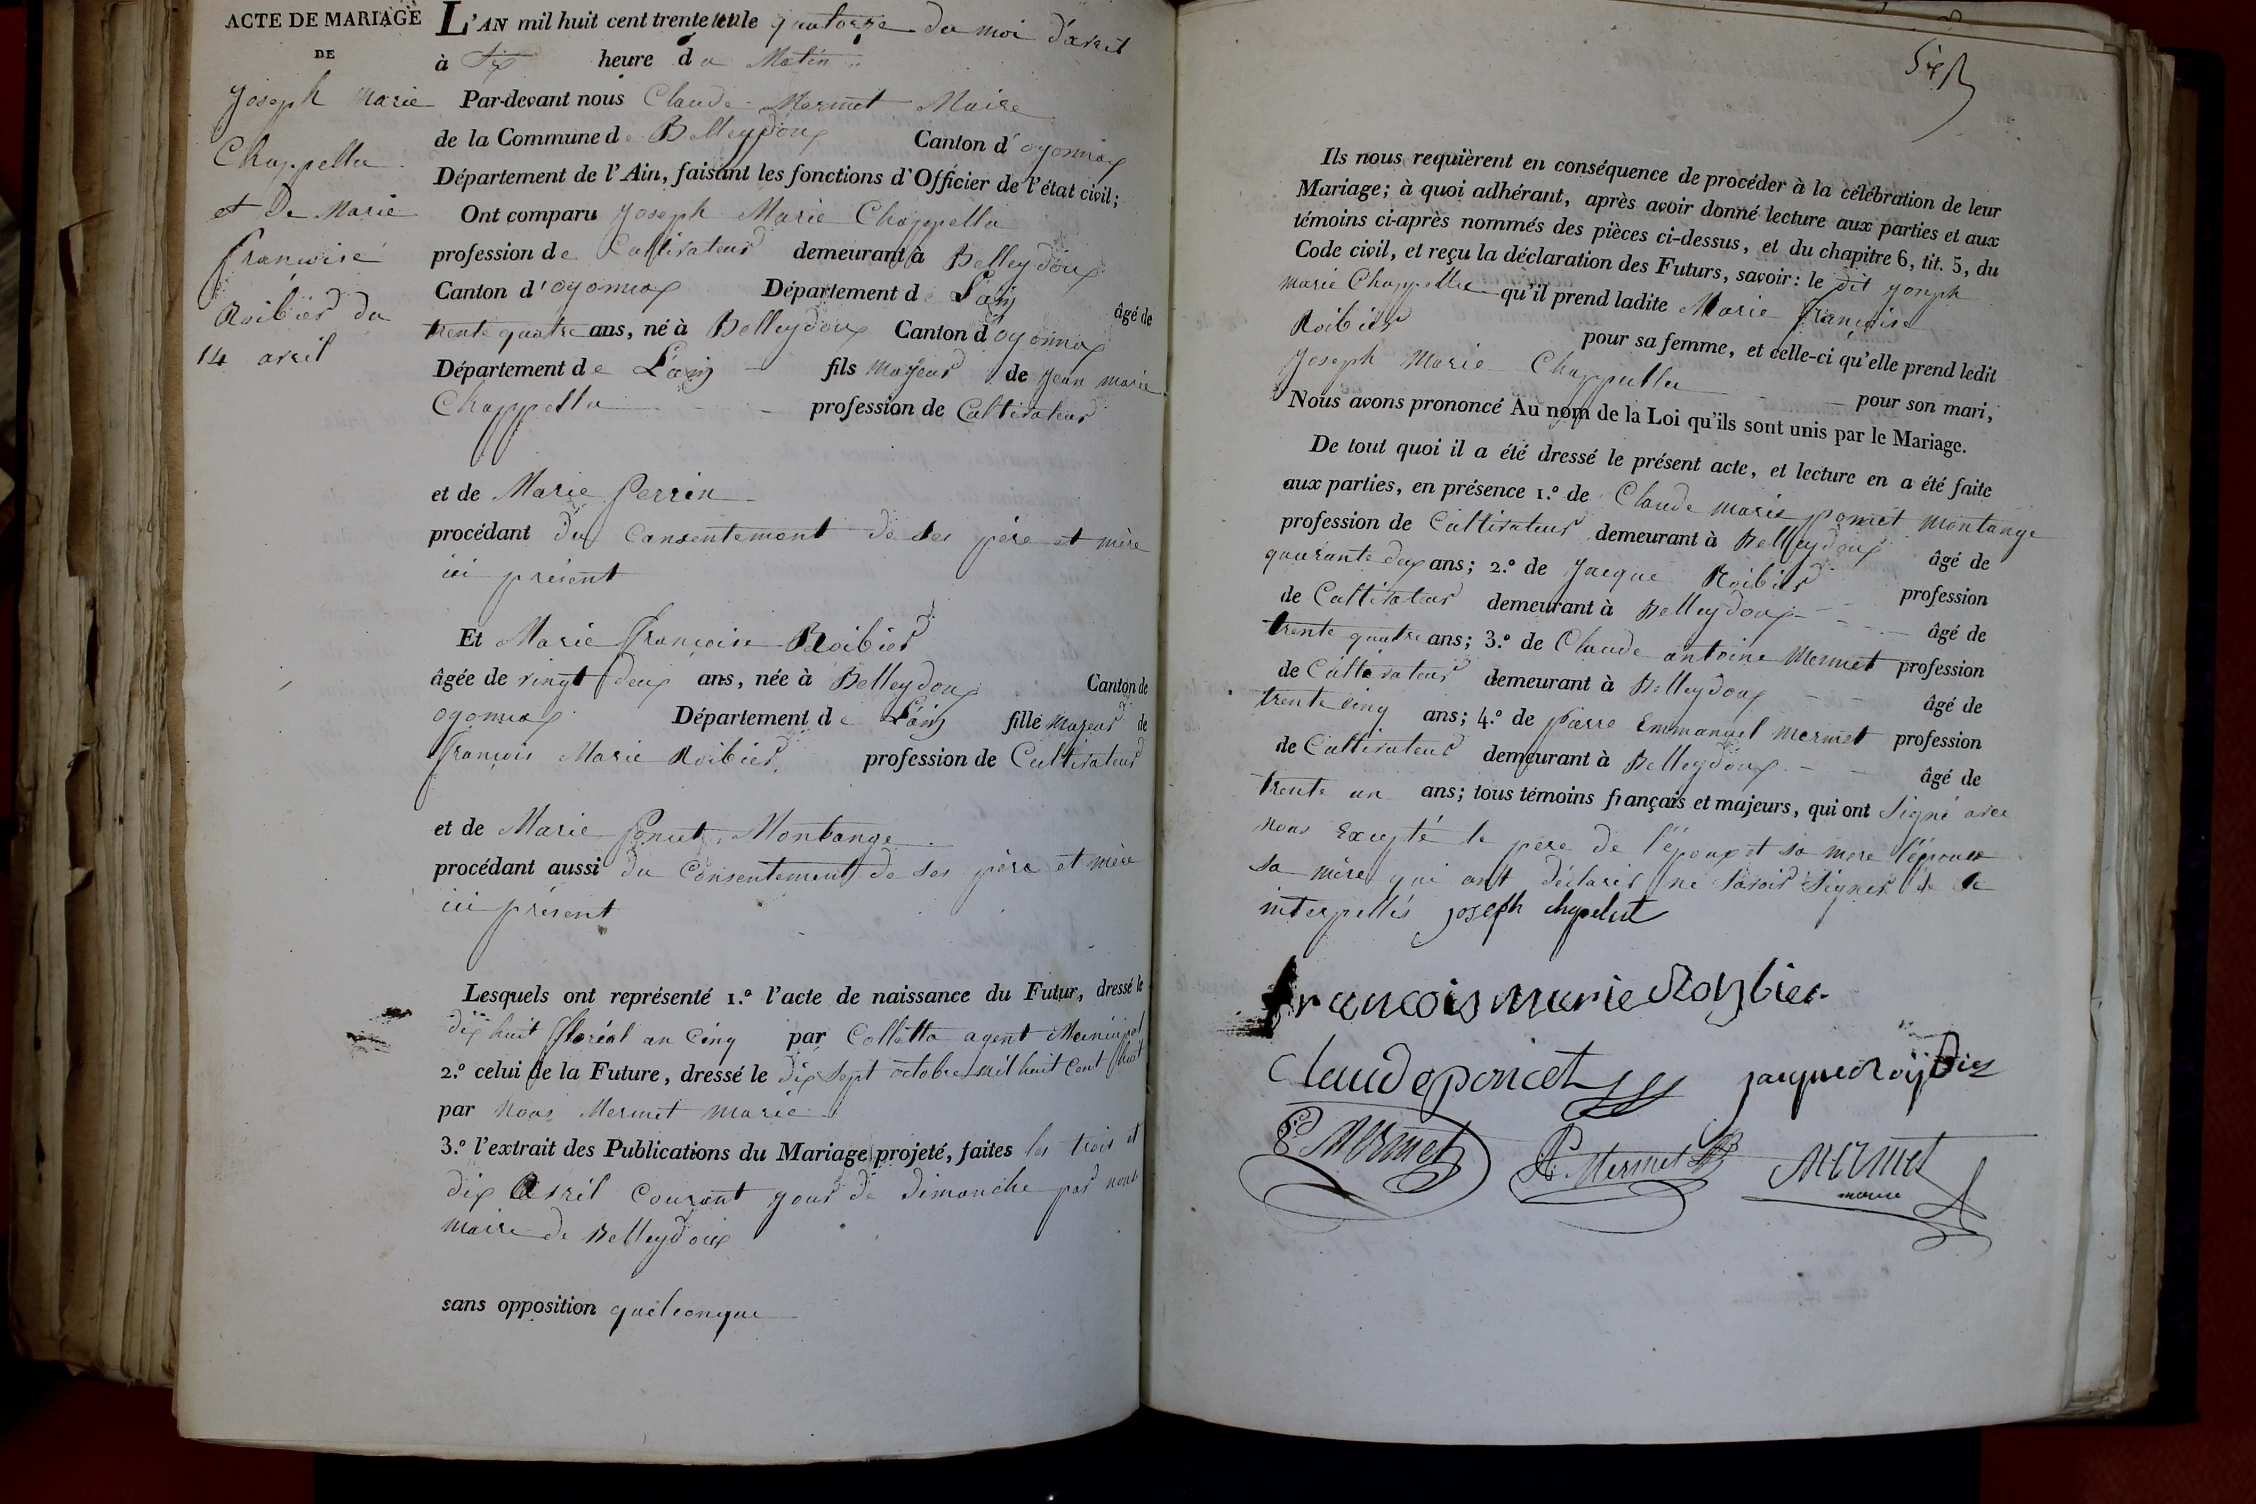 ACTE DE MARIAGE
DE
Joseph Marie
Chappellu
et De Marie
françoise
Roibier du
14 avril
L'AN mil huit cent trente quatorze du moi d'avril
à Six heure du Matin
Par-devant nous Claude Mermet Maire
de la Commune de Belleydoux Canton d'oyonnax
Département de l'Ain, faisant les fonctions d'Officier de l'état civil;
Ont comparu Joseph Marie Chappellu
profession de Cultivateur demeurant à Belleydoux
Canton d'oyonnax Département de L'ain âgé de
trente quatre ans, né à Belleydoux Canton d oyonnax
Département de L'ain fils majeur de Jean marie
Chappellu profession de Cultivateur
et de Marie Perrin
procédant du Consentement de ses père et mère
ici présent
Et Marie françoise Roibier
âgée de vingt deux ans, née à Belleydoux Canton de
oyonnax Département de L'ain fille majeur de
françois Marie Roibier profession de Cultivateur
et de Marie Poncet Montange
procédant aussi du Consentement de ses père et mère
ici présent
Lesquels ont représenté 1.º l'acte de naissance du Futur, dressé le
dix huit floréal an Cinq par Colletta agent Municipal
2.º celui de la Future, dressé le dix sept octobre mil huit cent huit
par Nous Mermet marie
3.º l'extrait des Publications du Mariage projeté, faites les trois et
dix avril Courant jour de dimanche par nous
maire de Belleydoux
sans opposition quelconque
Ils nous requièrent en conséquence de procéder à la célébration de leur
Mariage; à quoi adhérant, après avoir donné lecture aux parties et aux
témoins ci-après nommés des pièces ci-dessus, et du chapitre 6, tit. 5, du
Code civil, et reçu la déclaration des Futurs, savoir: le dit joseph
marie Chappellu qu'il prend ladite Marie françoise
Roibier pour sa femme, et celle-ci qu'elle prend ledit
Joseph Marie Chappellu pour son mari,
Nous avons prononcé Au nom de la Loi qu'ils sont unis par le Mariage.
De tout quoi il a été dressé le présent acte, et lecture en a été faite
aux parties, en présence 1.º de Claude marie poncet montange
profession de Cultivateur demeurant à Belleydoux âgé de
quarante deux ans; 2.º de Jacque Roibier profession
de Cultivateur demeurant à Belleydoux âgé de
trente quatre ans; 3.º de Claude antoine Mermet profession
de Cultivateur demeurant à Belleydoux âgé de
trente cinq ans; 4.º de pierre Emmanuel mermet profession
de Cultivateur demeurant à Belleydoux âgé de
trente un ans; tous témoins français et majeurs, qui ont Signé avec
nous Excepté le père de l'époux et sa mere l'épouse
sa mère qui ont déclarer ne savoir signer de ce
interpellés joseph chapelut
francois marie Roybier
Claude poncet jacque Roÿbier
Mermet P. Mermet Mermet
maire